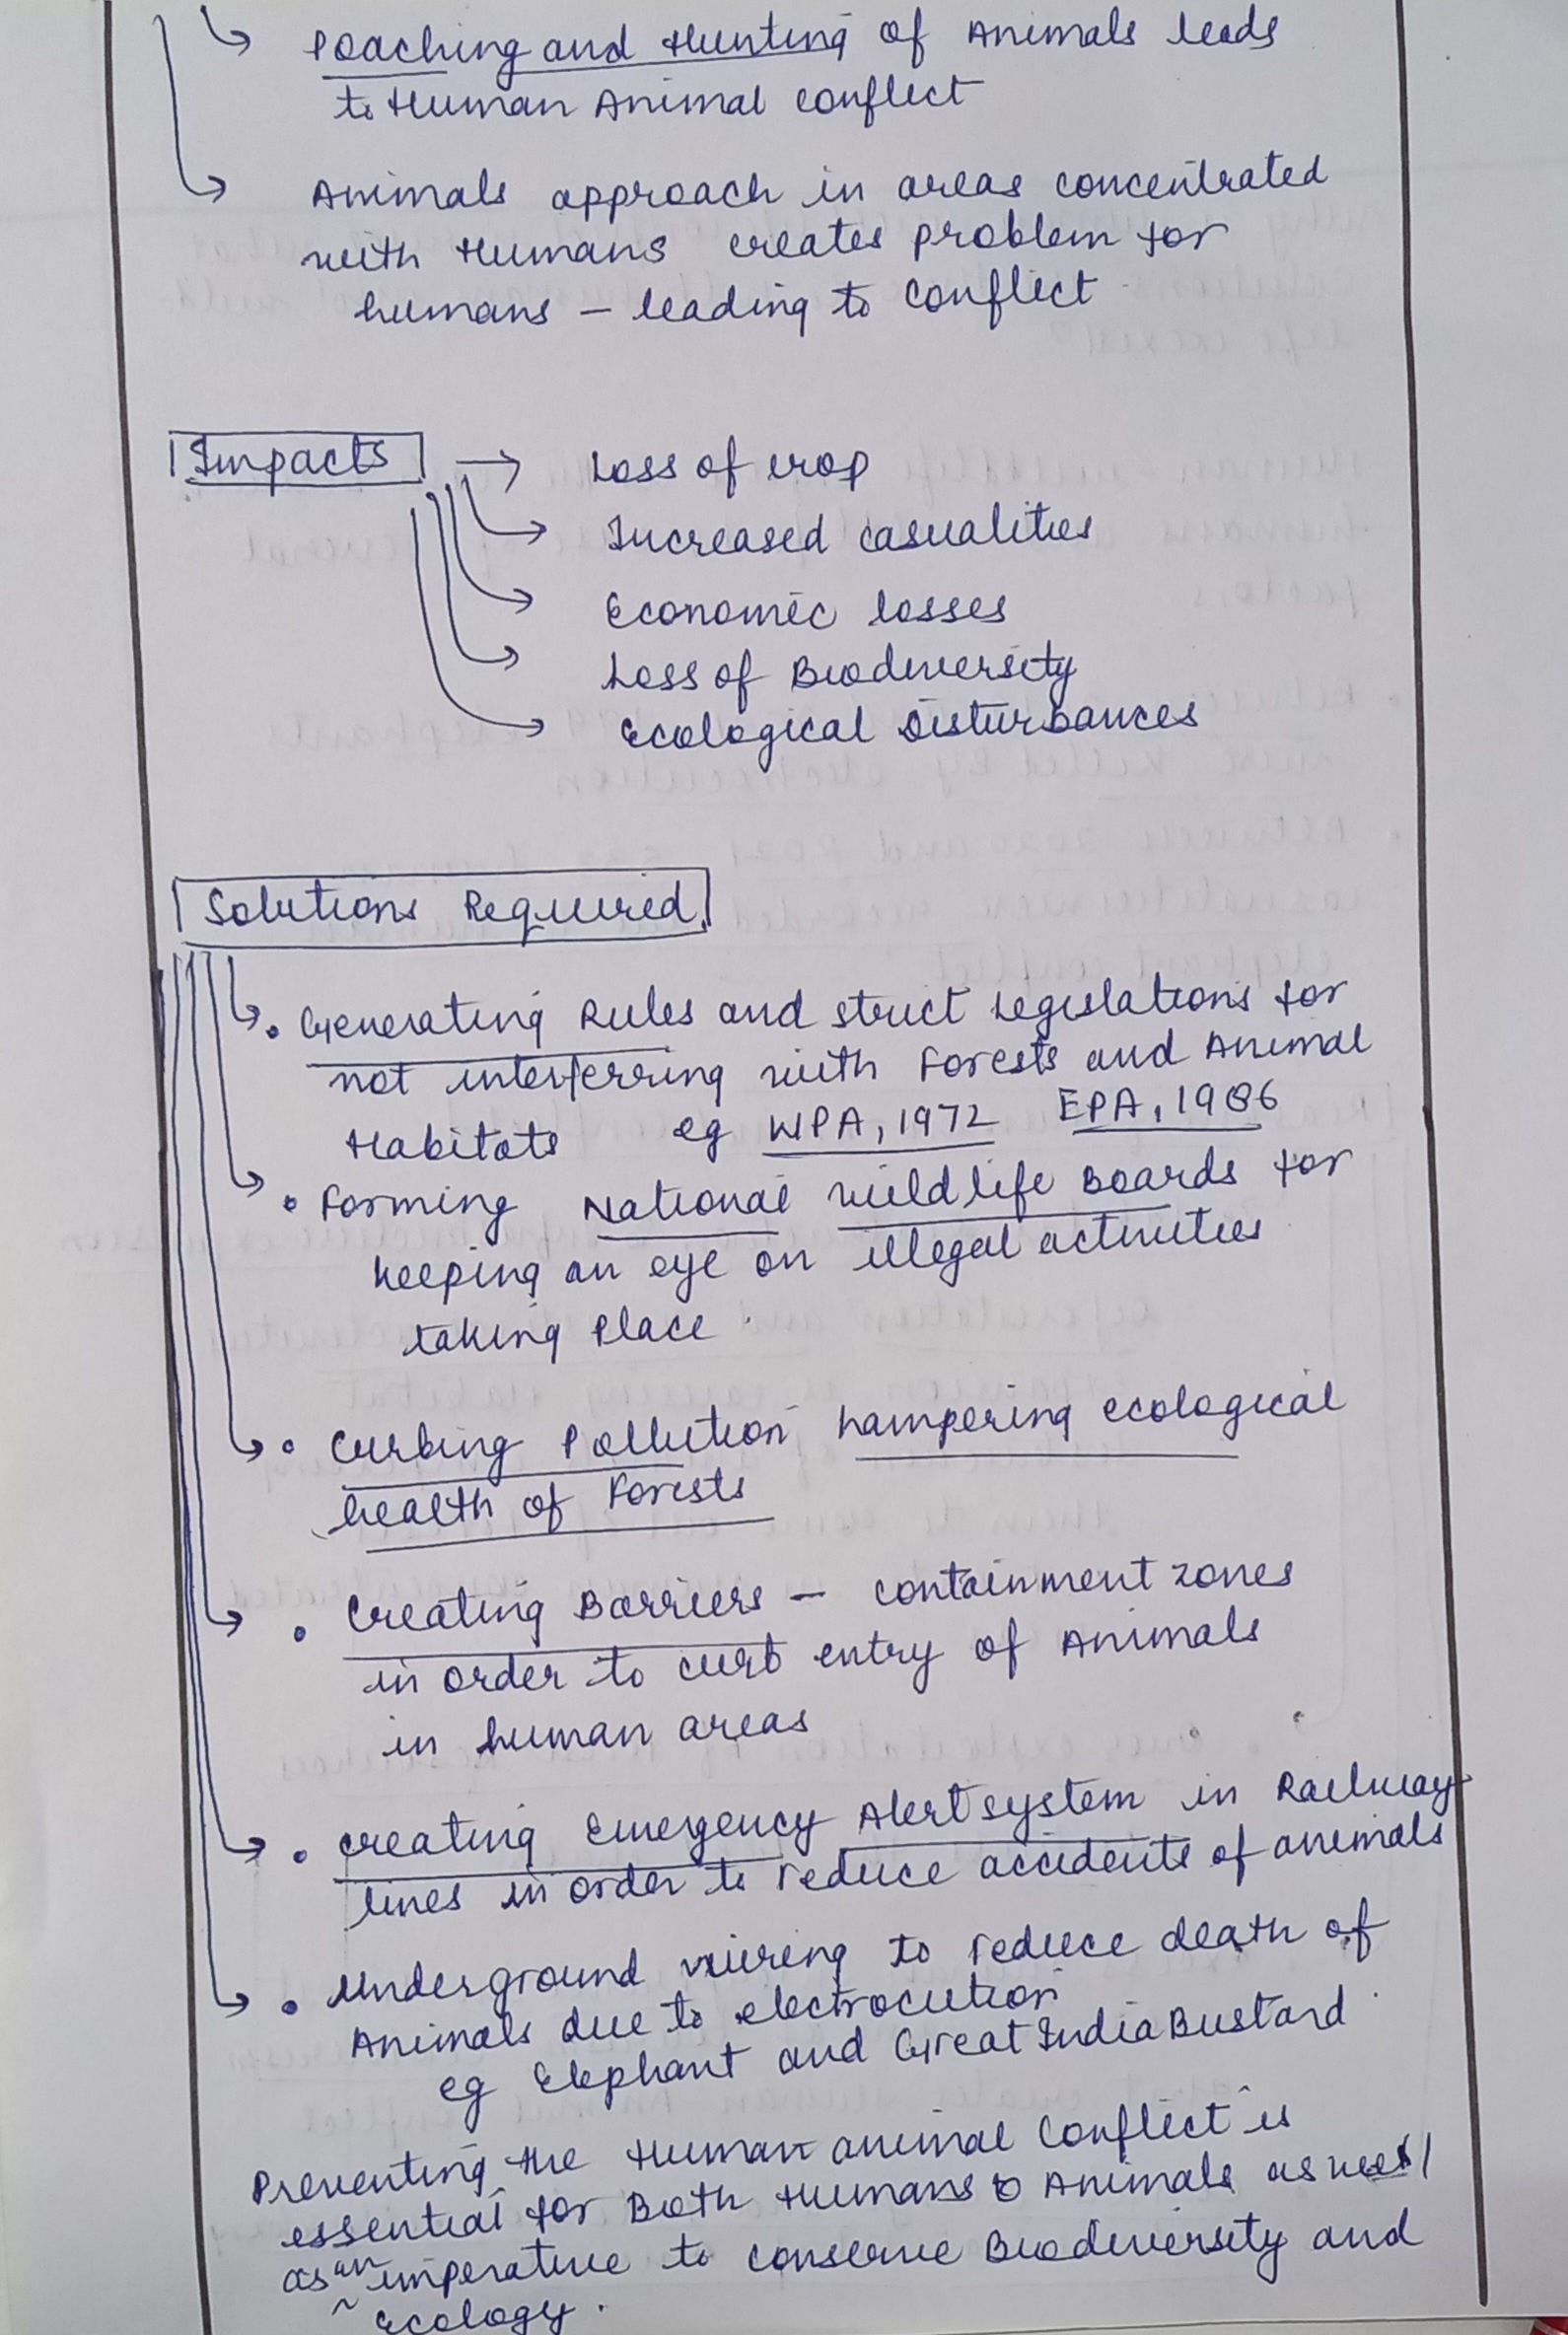 Poaching and Hunting of Animals leads
to Human Animal conflict
Animals approach in areas concentrated
with Humans creates problem for
humans – leading to conflict
Impacts → Loss of crop
Increased casualities
Economic losses
Loss of Biodiversity
Ecological Disturbances
Solutions Required
• Generating Rules and strict legislations for
not interferring with Forests and Animal
Habitats eg WPA, 1972 EPA, 1986
• Forming National wildlife Boards for
keeping an eye on illegal activities
taking place.
• Curbing Pollution hampering ecological
health of Forests
• Creating Barriers – containment zones
in order to curb entry of Animals
in human areas
• creating Emergency Alert system in Railway
lines in order to reduce accidents of animals
• Underground wiring to reduce death of
Animals due to electrocution
eg Elephant and Great India Bustard.
Preventing the Human animal Conflict is
essential for Both Humans & Animals as well
as an imperative to conserve Biodiversity and
Ecology.